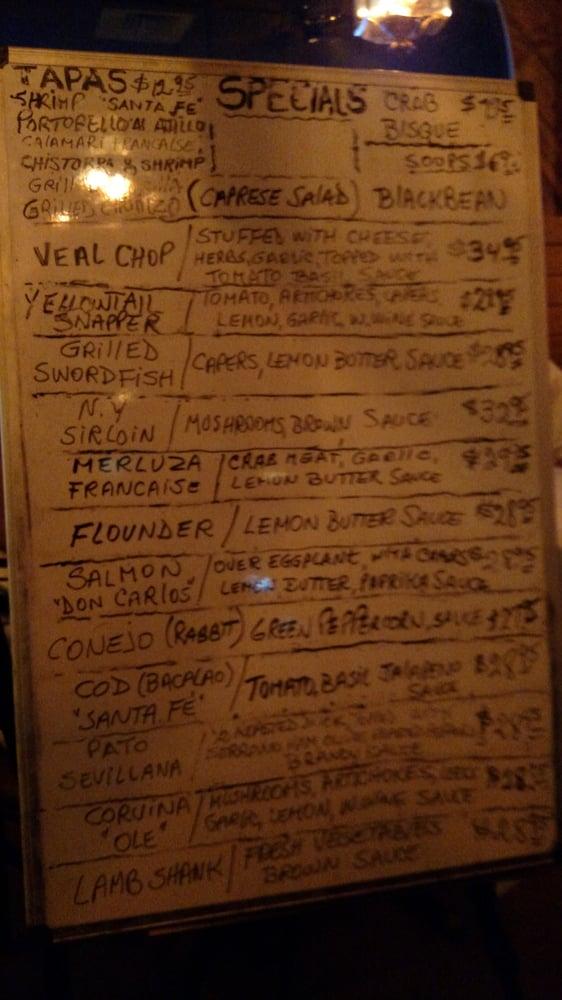 TAPAS $12.95
SHRIMP "SANTA FE"
PORTOBELLO AL AJILLO
CALAMARI FRANCAISE,
CHISTORRA & SHRIMP
GRILLED
GRILLED CHORIZO
SPECIALS
(CAPRESE SALAD)
CRAB
BISQUE
SOUPS $6
BLACKBEAN
VEAL CHOP / STUFFED WITH CHEESE,
HERBS, GARLIC, TOPPED WITH $34.95
TOMATO BASIL SAUCE
YELLOWTAIL
SNAPPER / TOMATO, ARTICHOKES, CAPERS,
LEMON, GARLIC, W. WINE SAUCE
GRILLED
SWORDFISH / CAPERS, LEMON BUTTER SAUCE $28.95
N.Y
SIRLOIN / MUSHROOMS, BROWN SAUCE $32.95
MERLUZA
FRANCAISE / CRAB MEAT, GARLIC,
LEMON BUTTER SAUCE
FLOUNDER / LEMON BUTTER SAUCE $28.95
SALMON
"DON CARLOS" / OVER EGGPLANT, WITH
LEMON BUTTER, PAPRIKA SAUCE
CONEJO (RABBIT) GREEN PEPPERCORN, SAUCE $27.95
COD (BACALAO)
"SANTA FE" / TOMATO, BASIL JALAPENO
SAUCE $28.95
PATO
SEVILLANA / ROASTED DUCK
SERRANO HAM
BRANDY SAUCE
CORVINA
"OLE" / MUSHROOMS, ARTICHOKES,
GARLIC, LEMON, W. WINE SAUCE
LAMB SHANK / FRESH VEGETABLES
BROWN SAUCE